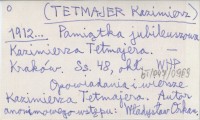 (TETMAJER Kazimierz)
1912... Pamiątka jubileuszowa
Kazimierza Tetmajera. —
Kraków. Ss. 48, okł. WHP
Opowiadania i wiersze
Kazimierza Tetmajera. Autor
anonimowego wstępu: Władysław Orkan.